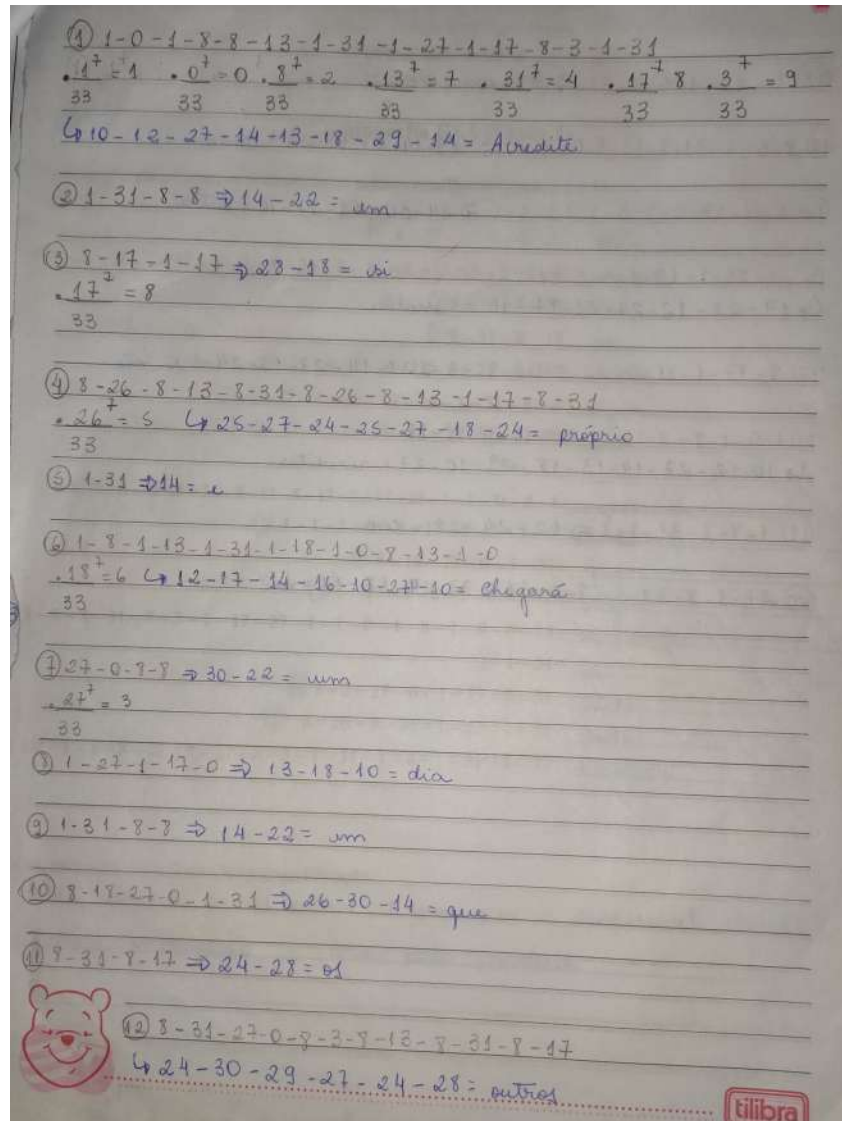 ① 1-0-1-8-8-13-1-31-1-27-1-17-8-3-1-31
. 1⁷/33 = 1 . 0⁷/33 = 0 . 8⁷/33 = 2 . 13⁷/33 = 7 . 31⁷/33 = 4 . 17⁷/33 8 . 3⁷/33 = 9
↳ 10-12-27-14-13-18-29-14 = Acredite
② 1-31-8-8 ⇒ 14-22 = em
③ 8-17-1-17 ⇒ 28-18 = si
. 17⁷/33 = 8
④ 8-26-8-13-8-31-8-26-8-13-1-17-8-31
. 26⁷/33 = 5 ↳ 25-27-24-25-27-18-24 = próprio
⑤ 1-31 ⇒ 14 = e
⑥ 1-8-1-13-1-31-1-18-1-0-8-13-1-0
. 18⁷/33 = 6 ↳ 12-17-14-16-10-27-10 = Chegará
⑦ 27-0-8-8 ⇒ 30-22 = um
. 27⁷/33 = 3
⑧ 1-27-1-17-0 ⇒ 13-18-10 = dia
⑨ 1-31-8-8 ⇒ 14-22 = em
⑩ 8-18-27-0-1-31 ⇒ 26-30-14 = que
⑪ 8-31-8-17 ⇒ 24-28 = os
⑫ 8-31-27-0-8-3-8-13-8-31-8-17
↳ 24-30-29-27-24-28 = outros
tilibra